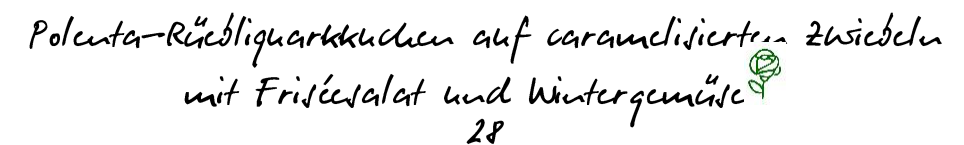 Polenta-Rüebliquarkkuchen auf caramelisierten Zwiebeln
mit Friséesalat und Wintergemüse
28